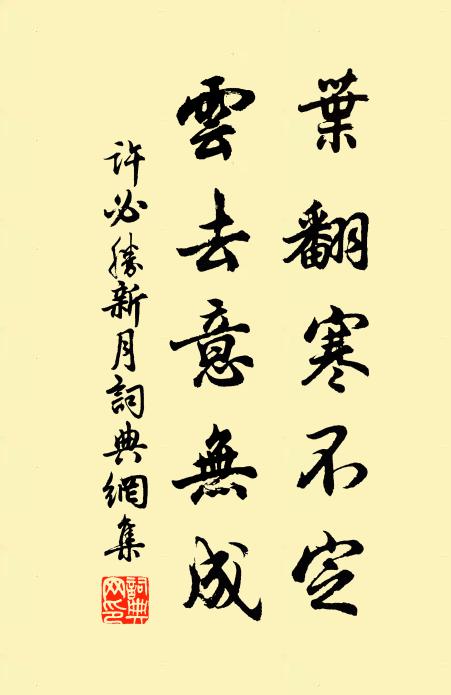 葉翻寒不定
雲去意無成
許必勝新月詞典網集
詞典網印